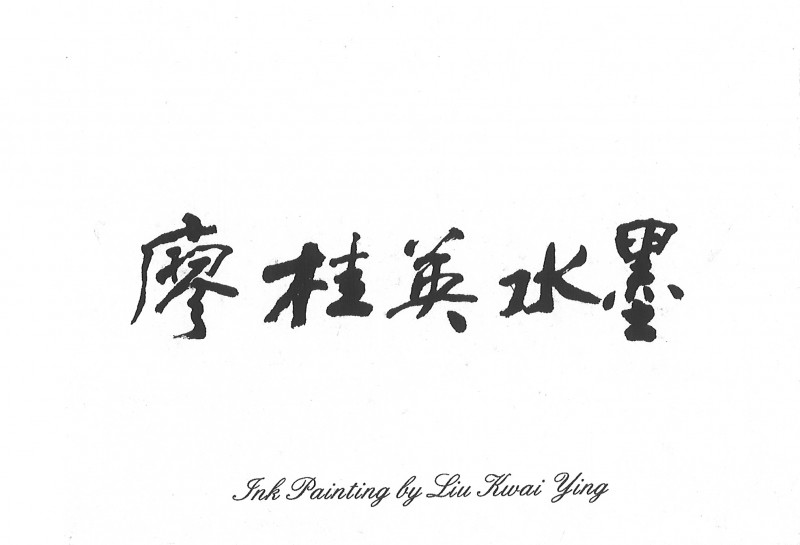 廖桂英水墨
Ink Painting by Liu Kwai Ying